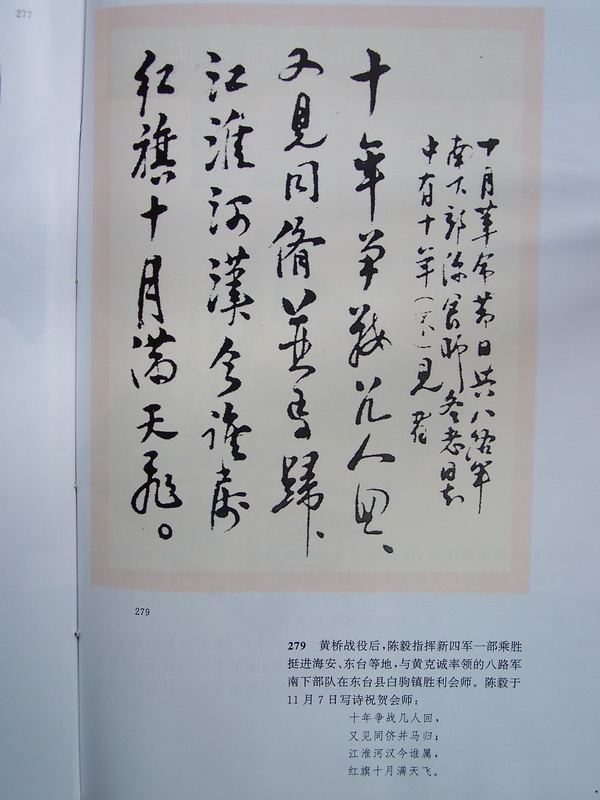 277
十月革命节日与八路军
南下部队会师 多老同志
中有十年(不)见者
十年争战几人回、
又见同侪并马归、
江淮河汉今谁属
红旗十月满天飞。
279
279 黄桥战役后，陈毅指挥新四军一部乘胜
挺进海安、东台等地，与黄克诚率领的八路军
南下部队在东台县白驹镇胜利会师。陈毅于
11月7日写诗祝贺会师：
十年争战几人回，
又见同侪并马归；
江淮河汉今谁属，
红旗十月满天飞。